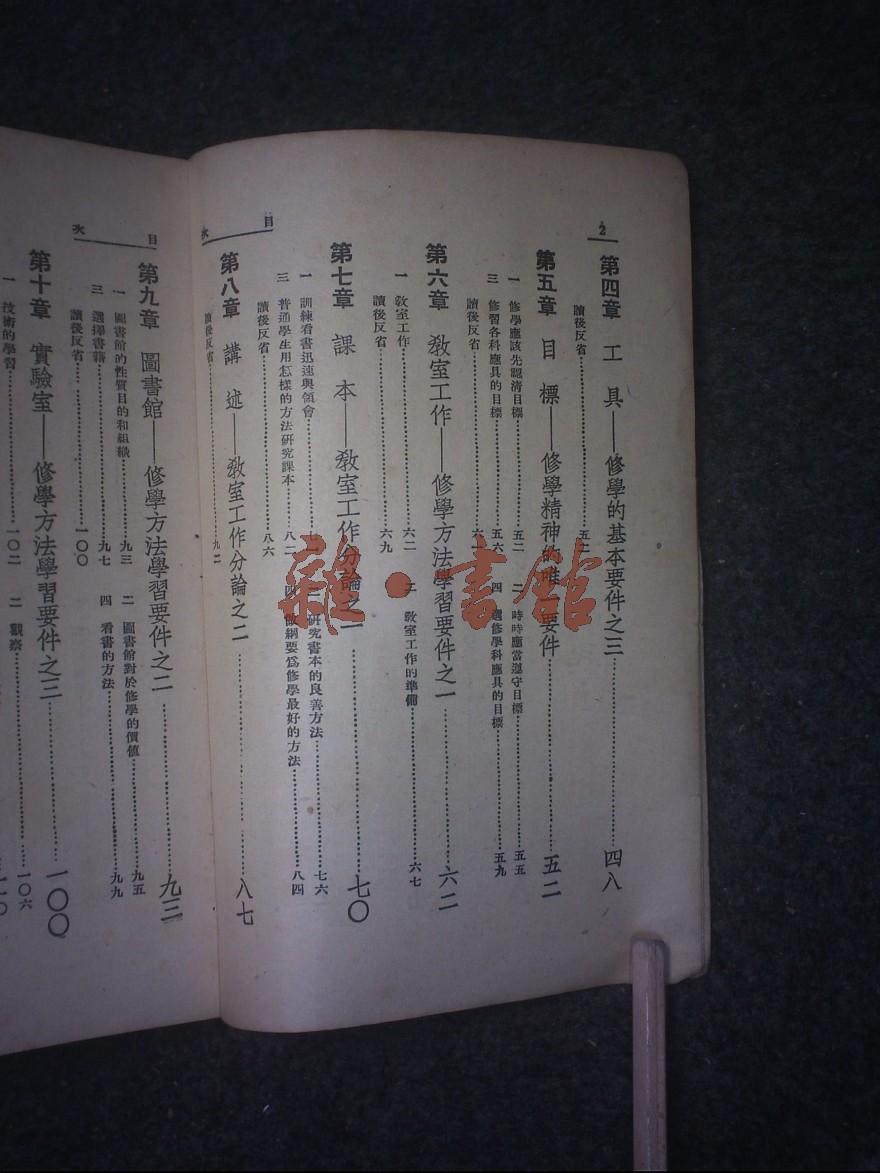 2
第四章 工具——修學的基本要件之三……四八
讀後反省……五
第五章 目標——修學精神的唯 要件……五二
一 修學應該先認清目標……五二 二 時時應當遵守目標……五五
三 修習各科應具的目標……五六 四 選修學科應具的目標……五九
讀後反省……六
第六章 敎室工作——修學方法學習要件之一……六二
一 敎室工作……六二 二 敎室工作的準備……六七
讀後反省……六九
目次
第七章 課本——敎室工作分論之一……七〇
一 訓練看書迅速與領會…… 二 研究書本的良善方法……七六
三 普通學生用怎樣的方法研究課本……八二 四 做綱要爲修學最好的方法……八四
讀後反省……八六
第八章 講述——敎室工作分論之二……八七
讀後反省……九二
目次
第九章 圖書館——修學方法學習要件之二……九三
一 圖書館的性質目的和組織……九三 二 圖書館對於修學的價値……九五
三 選擇書籍……九七 四 看書的方法……九九
讀後反省……一〇〇
第十章 實驗室——修學方法學習要件之三……一〇〇
一 技術的學習……一〇二 二 觀察……一〇六
雜·書館